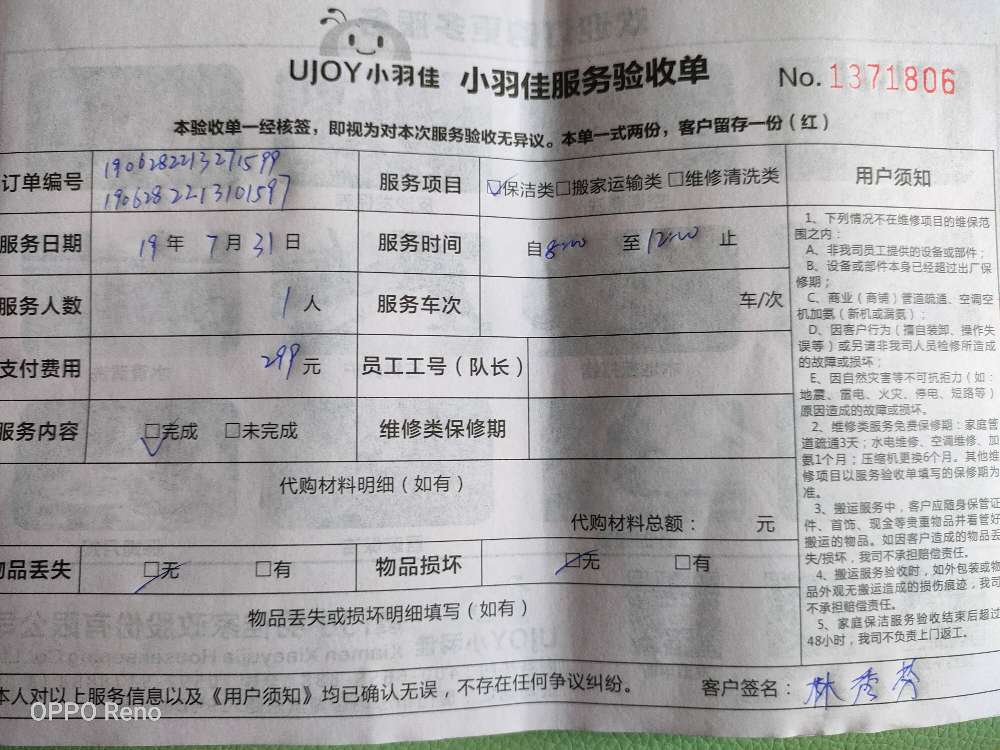 UJOY小羽佳 小羽佳服务验收单 No. 1371806
本验收单一经核签，即视为对本次服务验收无异议。本单一式两份，客户留存一份（红）
订单编号 1906282213271599
1906282213101597
服务项目 ☑保洁类□搬家运输类□维修清洗类
服务日期 19 年 7 月 31 日 服务时间 自8:00 至12:00 止
服务人数 1 人 服务车次 车/次
支付费用 299 元 员工工号（队长）
服务内容 ☑完成 □未完成 维修类保修期
代购材料明细（如有）
代购材料总额： 元
物品丢失 ☑无 □有 物品损坏 ☑无 □有
物品丢失或损坏明细填写（如有）
用户须知
1、下列情况不在维修项目的维保范
围之内：
A、非我司员工提供的设备或部件；
B、设备或部件本身已经超过出厂保
修期；
C、商业（商铺）管道疏通、空调空
机加氨（新机或漏氨）；
D、因客户行为（擅自装卸、操作失
误等）或另请非我司人员检修所造成
的故障或损坏；
E、因自然灾害等不可抗拒力（如：
地震、雷电、火灾、停电、短路等）
原因造成的故障或损坏。
2、维修类服务免费保修期：家庭管
道疏通3天；水电维修、空调维修、加
氨1个月；压缩机更换6个月。其他维
修项目以服务验收单填写的保修期为
准。
3、搬运服务中，客户应随身保管证
件、首饰、现金等贵重物品并看管好
搬运的物品。如因客户造成的物品丢
失/损坏，我司不承担赔偿责任。
4、搬运服务验收时，如外包装或物
品外观无搬运造成的损伤痕迹，我司
不承担赔偿责任。
5、家庭保洁服务验收结束后超过
48小时，我司不负责上门返工。
本人对以上服务信息以及《用户须知》均已确认无误，不存在任何争议纠纷。 客户签名：林秀芬
OPPO Reno